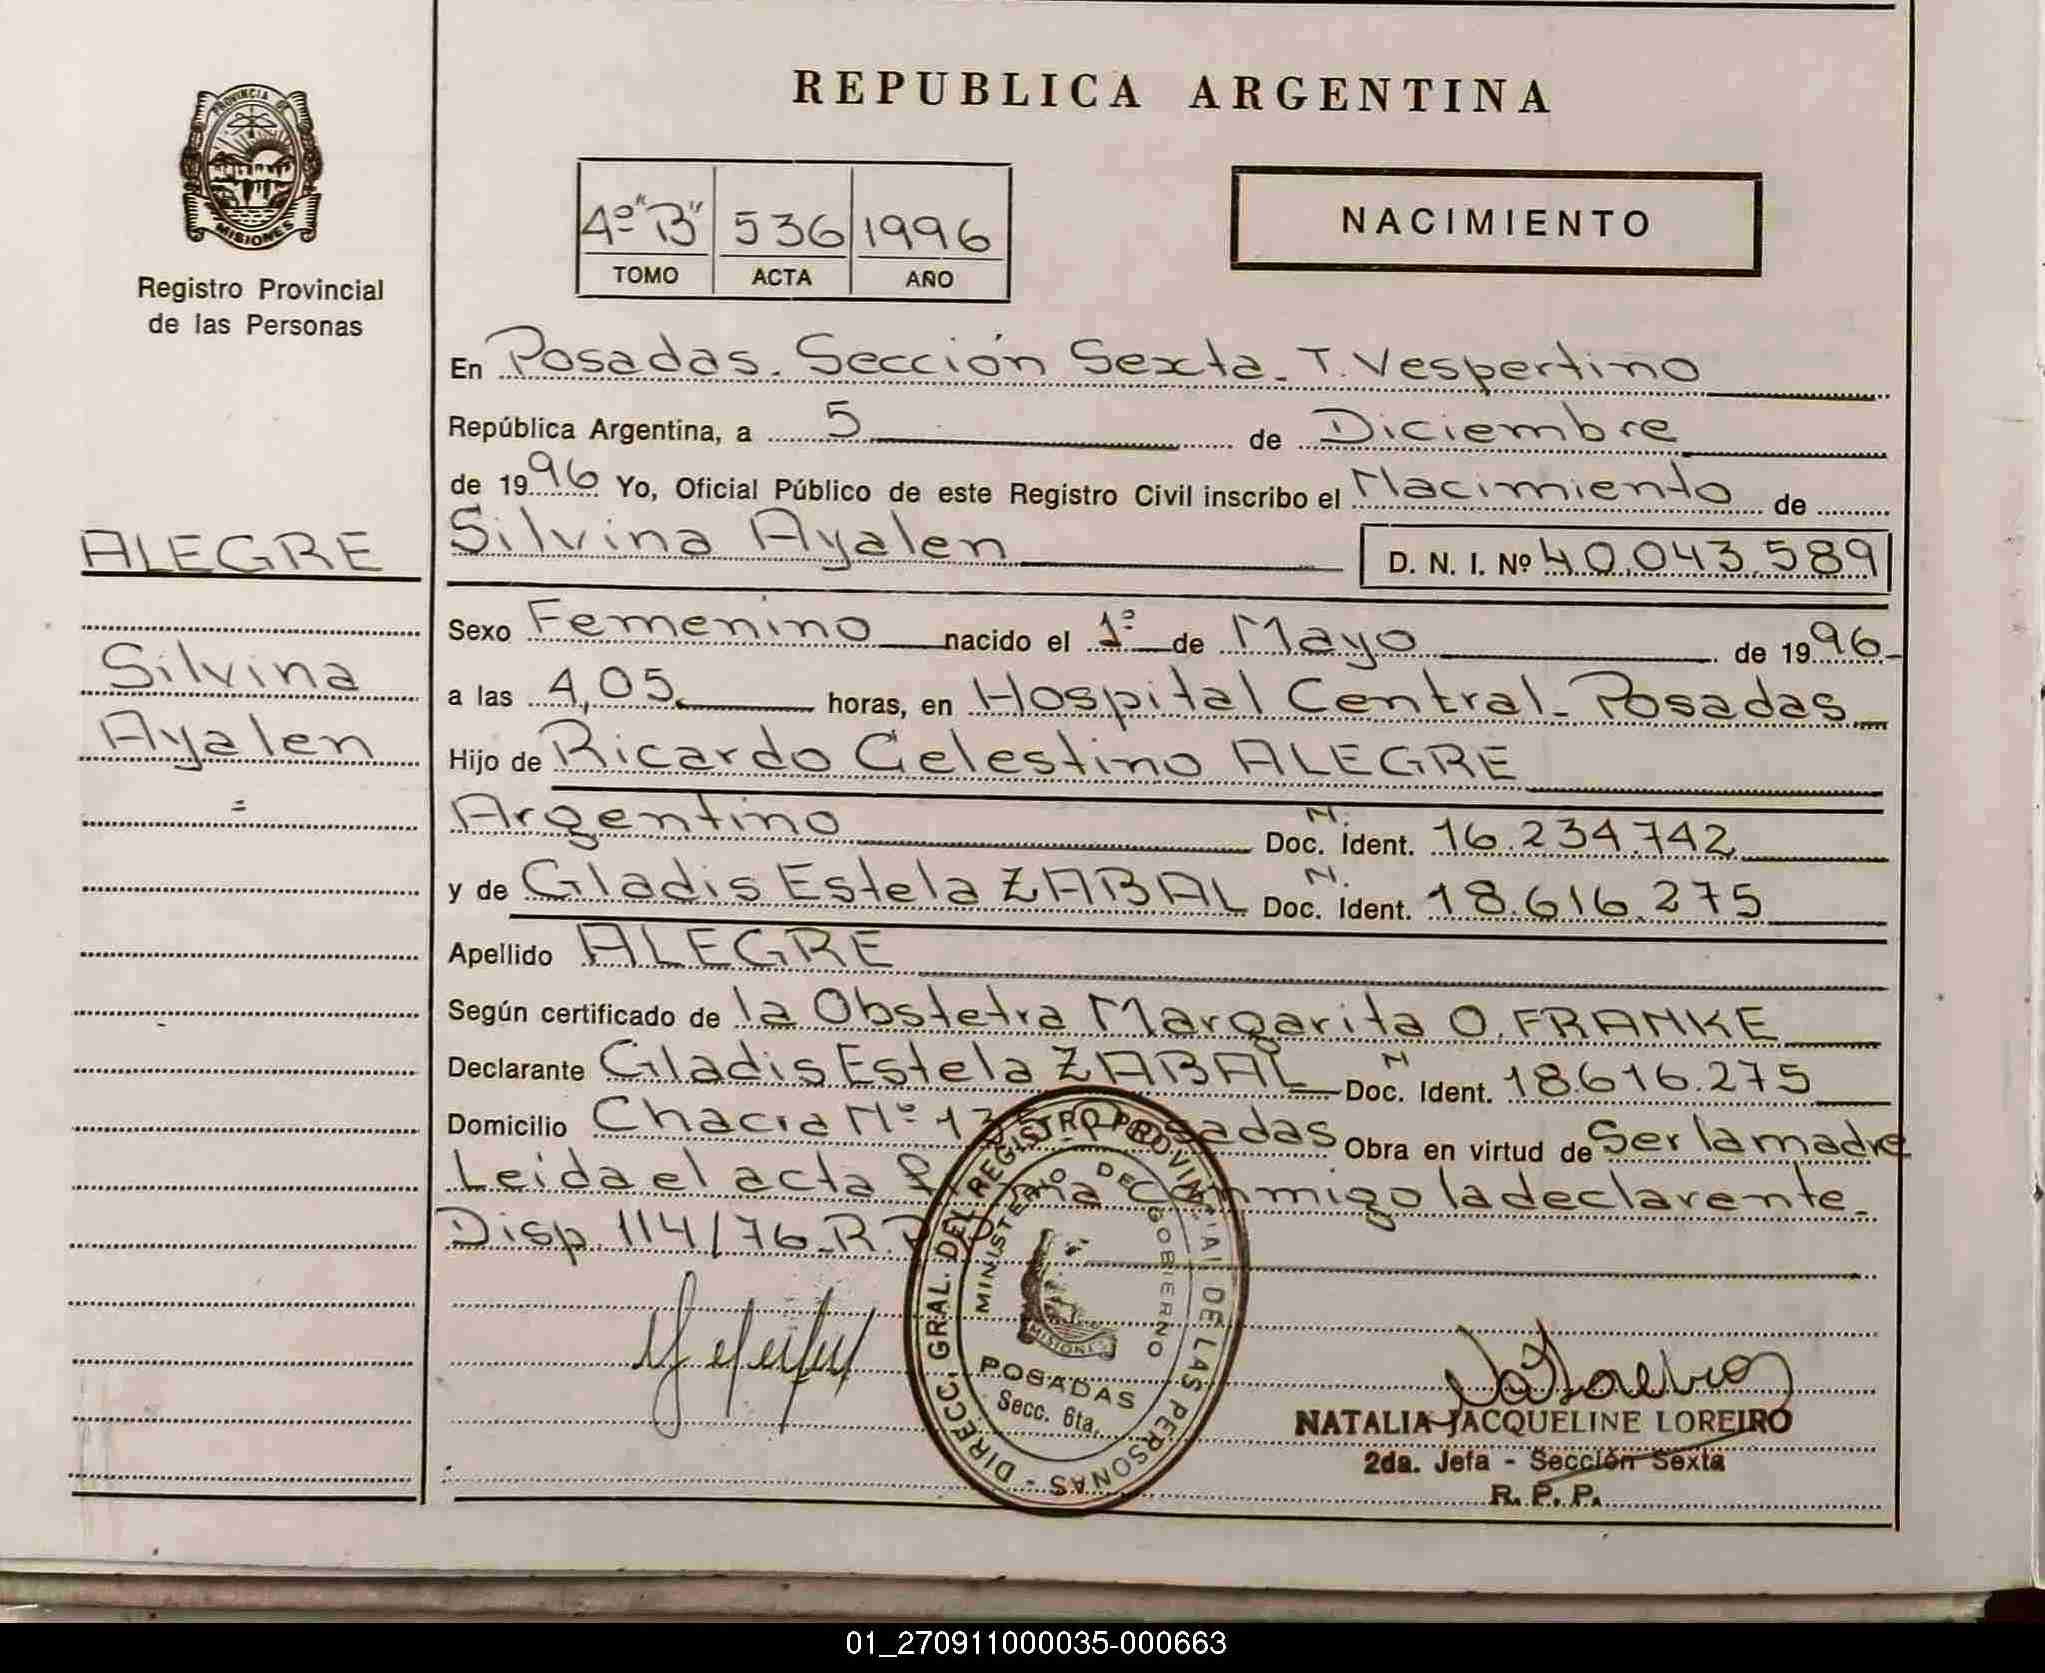 REPUBLICA ARGENTINA
PROVINCIA DE
MISIONES
Registro Provincial
de las Personas
4º "B" 536 1996
TOMO ACTA AÑO
NACIMIENTO
En Posadas. Sección Sexta - T. Vespertino
República Argentina, a 5 de Diciembre
de 1996 Yo, Oficial Público de este Registro Civil inscribo el Nacimiento de
Silvina Ayalen D. N. I. Nº 40.043.589
ALEGRE
Silvina
Ayalen
=
Sexo Femenino nacido el 1º de Mayo de 1996-
a las 4,05. horas, en Hospital Central - Posadas
Hijo de Ricardo Celestino ALEGRE
Argentino Doc. N. Ident. 16.234.742
y de Gladis Estela ZABAL Doc. N. Ident. 18.616.275
Apellido ALEGRE
Según certificado de la Obstetra Margarita O. FRANKE
Declarante Gladis Estela ZABAL Doc. N Ident. 18.616.275
Domicilio Chacra Nº Posadas Obra en virtud de Ser la madre
Leida el acta firma conmigo la declarente.
Disp. 114/76 - R.P.P.
DIRECC. GRAL. DEL REGISTRO PROVINCIAL DE LAS PERSONAS -
MINISTERIO DE GOBIERNO
MISIONES
POSADAS
Secc. 6ta.
NATALIA JACQUELINE LOREIRO
2da. Jefa - Sección Sexta
R. P. P.
01_270911000035-000663